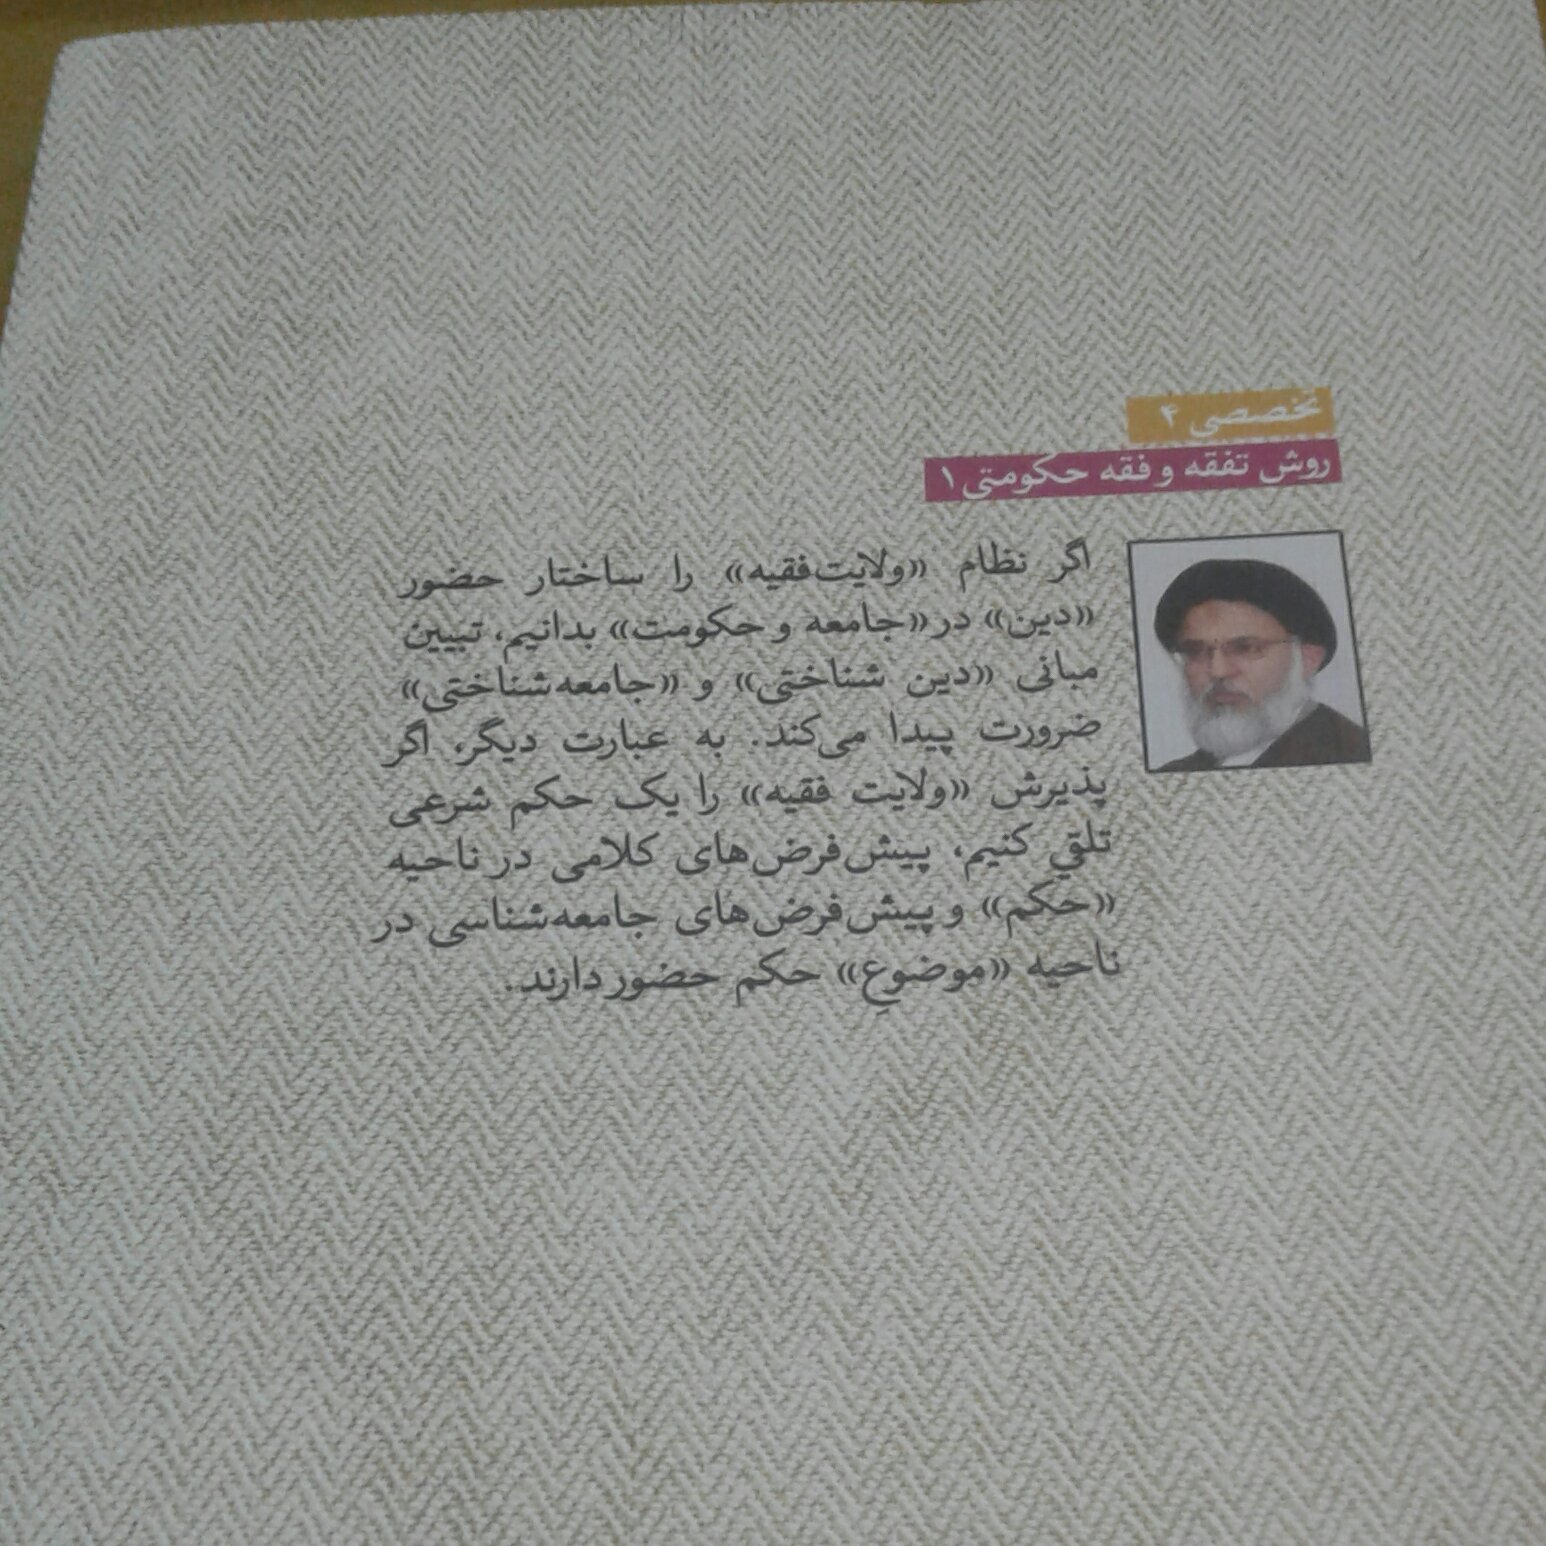 تخصصی ۴
روش تفقه و فقه حکومتی ۱
اگر نظام «ولایت‌فقیه» را ساختار حضور
«دین» در «جامعه و حکومت» بدانیم، تبیین
مبانی «دین شناختی» و «جامعه‌شناختی»
ضرورت پیدا می‌کند. به عبارت دیگر، اگر
پذیرش «ولایت فقیه» را یک حکم شرعی
تلقی کنیم، پیش‌فرض‌های کلامی در ناحیه
«حکم» و پیش‌فرض‌های جامعه‌شناسی در
ناحیه «موضوع» حکم حضور دارند.